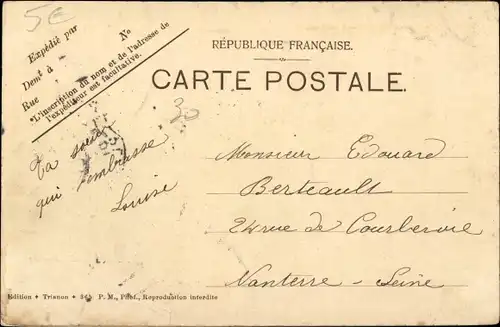 5€
Expédié par
Demt à N°
Rue
"L'inscription du nom et de l'adresse de
l'expéditeur est facultative.
RÉPUBLIQUE FRANÇAISE.
CARTE POSTALE.
30
Ta sœur
qui t'embrasse
Louise
Monsieur Edouard
Berteault
24 rue de Courbevoie
Nanterre - Seine
Edition + Trianon + P. M., Phot., Reproduction interdite